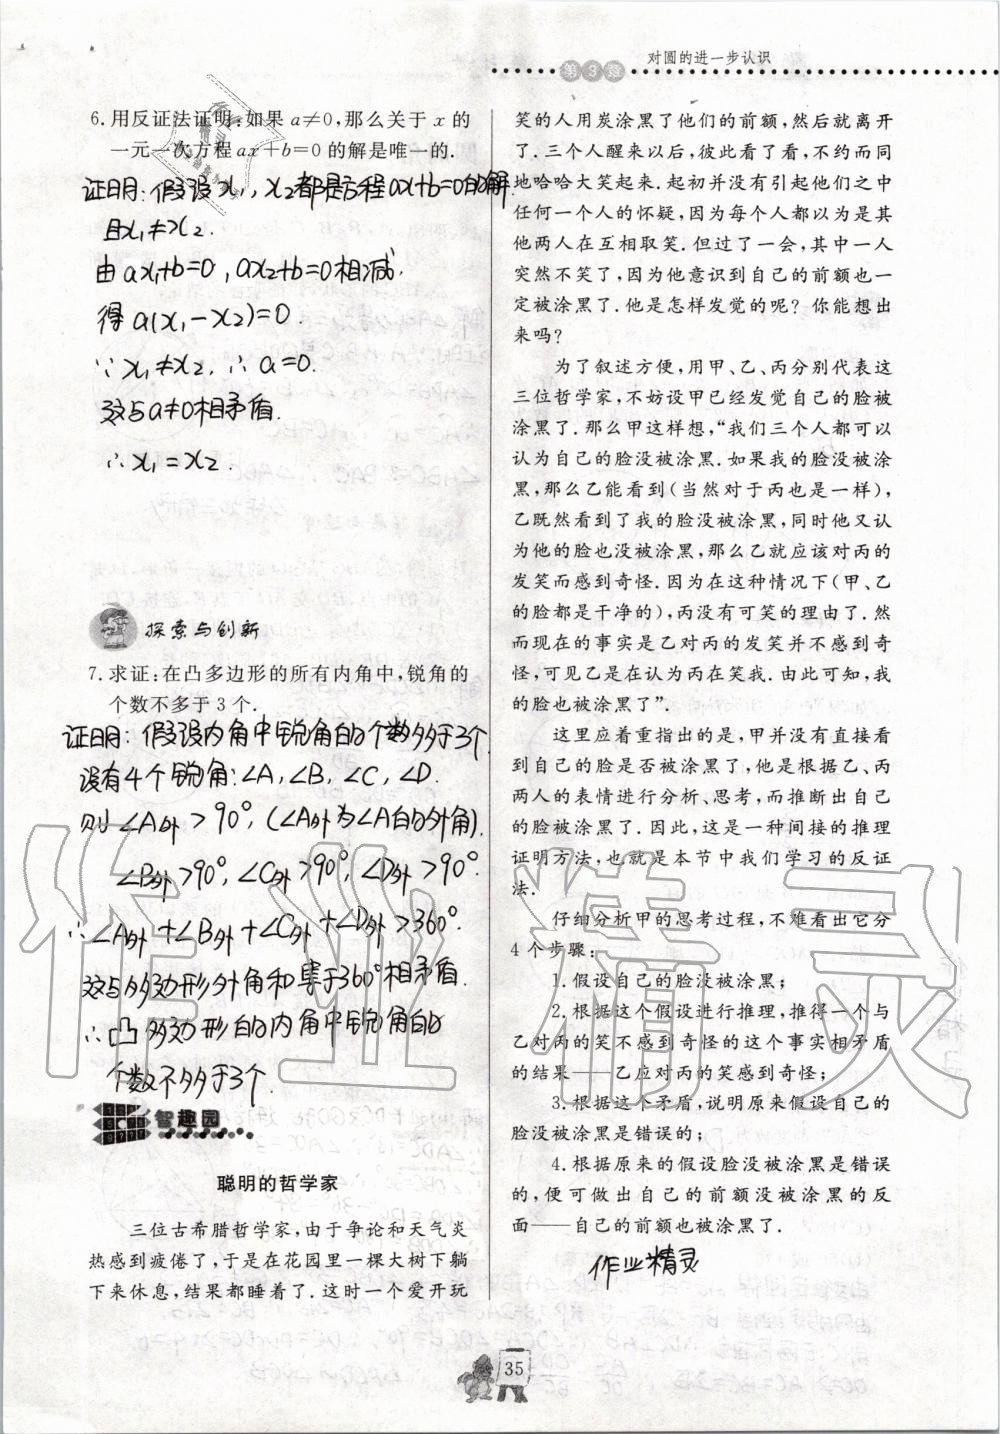 对圆的进一步认识
第3章
6.用反证法证明:如果a≠0,那么关于x的
一元一次方程ax+b=0的解是唯一的.
证明:假设x₁,x₂都是方程ax+b=0的解
且x₁≠x₂.
由ax₁+b=0,ax₂+b=0相减.
得a(x₁-x₂)=0.
∵x₁≠x₂. ∴a=0.
这与a≠0相矛盾.
∴x₁=x₂.
探索与创新
7.求证:在凸多边形的所有内角中,锐角的
个数不多于3个.
证明:假设内角中锐角的个数多于3个.
设有4个锐角:∠A,∠B,∠C,∠D.
则∠A外>90°,(∠A外为∠A的外角).
∠B外>90°,∠C外>90°,∠D外>90°.
∴∠A外+∠B外+∠C外+∠D外>360°.
这与多边形外角和等于360°相矛盾.
∴凸多边形的内角中锐角的
个数不多于3个.
智趣园
聪明的哲学家
三位古希腊哲学家,由于争论和天气炎
热感到疲倦了,于是在花园里一棵大树下躺
下来休息,结果都睡着了.这时一个爱开玩
笑的人用炭涂黑了他们的前额,然后就离开
了.三个人醒来以后,彼此看了看,不约而同
地哈哈大笑起来.起初并没有引起他们之中
任何一个人的怀疑,因为每个人都以为是其
他两人在互相取笑.但过了一会,其中一人
突然不笑了,因为他意识到自己的前额也一
定被涂黑了.他是怎样发觉的呢?你能想出
来吗?
为了叙述方便,用甲、乙、丙分别代表这
三位哲学家,不妨设甲已经发觉自己的脸被
涂黑了.那么甲这样想,“我们三个人都可以
认为自己的脸没被涂黑.如果我的脸没被涂
黑,那么乙能看到(当然对于丙也是一样),
乙既然看到了我的脸没被涂黑,同时他又认
为他的脸也没被涂黑,那么乙就应该对丙的
发笑而感到奇怪.因为在这种情况下(甲、乙
的脸都是干净的),丙没有可笑的理由了.然
而现在的事实是乙对丙的发笑并不感到奇
怪,可见乙是在认为丙在笑我.由此可知,我
的脸也被涂黑了”.
这里应着重指出的是,甲并没有直接看
到自己的脸是否被涂黑了,他是根据乙、丙
两人的表情进行分析、思考,而推断出自己
的脸被涂黑了.因此,这是一种间接的推理
证明方法,也就是本节中我们学习的反证
法.
仔细分析甲的思考过程,不难看出它分
4个步骤:
1.假设自己的脸没被涂黑;
2.根据这个假设进行推理,推得一个与
乙对丙的笑不感到奇怪的这个事实相矛盾
的结果——乙应对丙的笑感到奇怪;
3.根据这个矛盾,说明原来假设自己的
脸没被涂黑是错误的;
4.根据原来的假设脸没被涂黑是错误
的,便可做出自己的前额没被涂黑的反
面——自己的前额也被涂黑了.
作业精灵
35
作业精灵